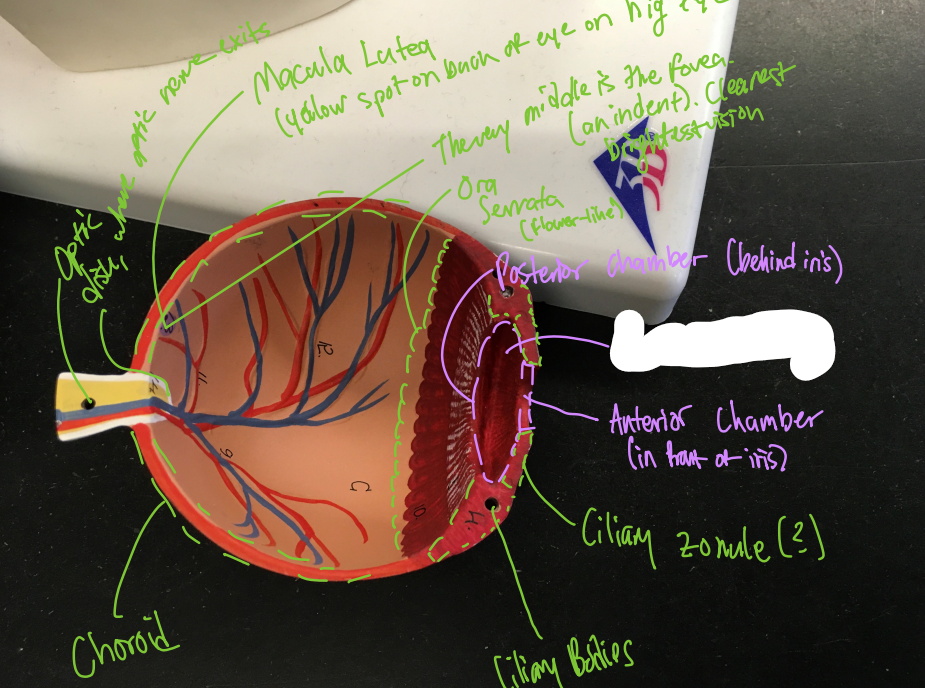 Macula Lutea
(yellow spot on back of eye on big eye
Optic
where optic nerve exits
The very middle is the fovea.
(an indent). Clearest
brightest vision
Ora
Serrata
(flower-like)
3B
Posterior chamber (behind iris)
Anterior Chamber
(in front of iris)
Ciliary zonule (?)
Ciliary Bodies
Choroid
12.
11.
9
G
10.
H.